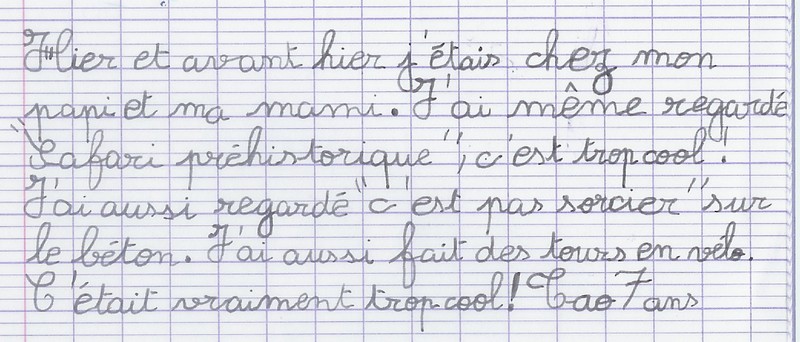 Hier et avant hier j'étais chez mon
papi et ma mami. J'ai même regardé
"Safari préhistorique", c'est trop cool !
J'ai aussi regardé "c'est pas sorcier" sur
le béton. J'ai aussi fait des tours en vélo.
C'était vraiment trop cool ! Tao 7 ans